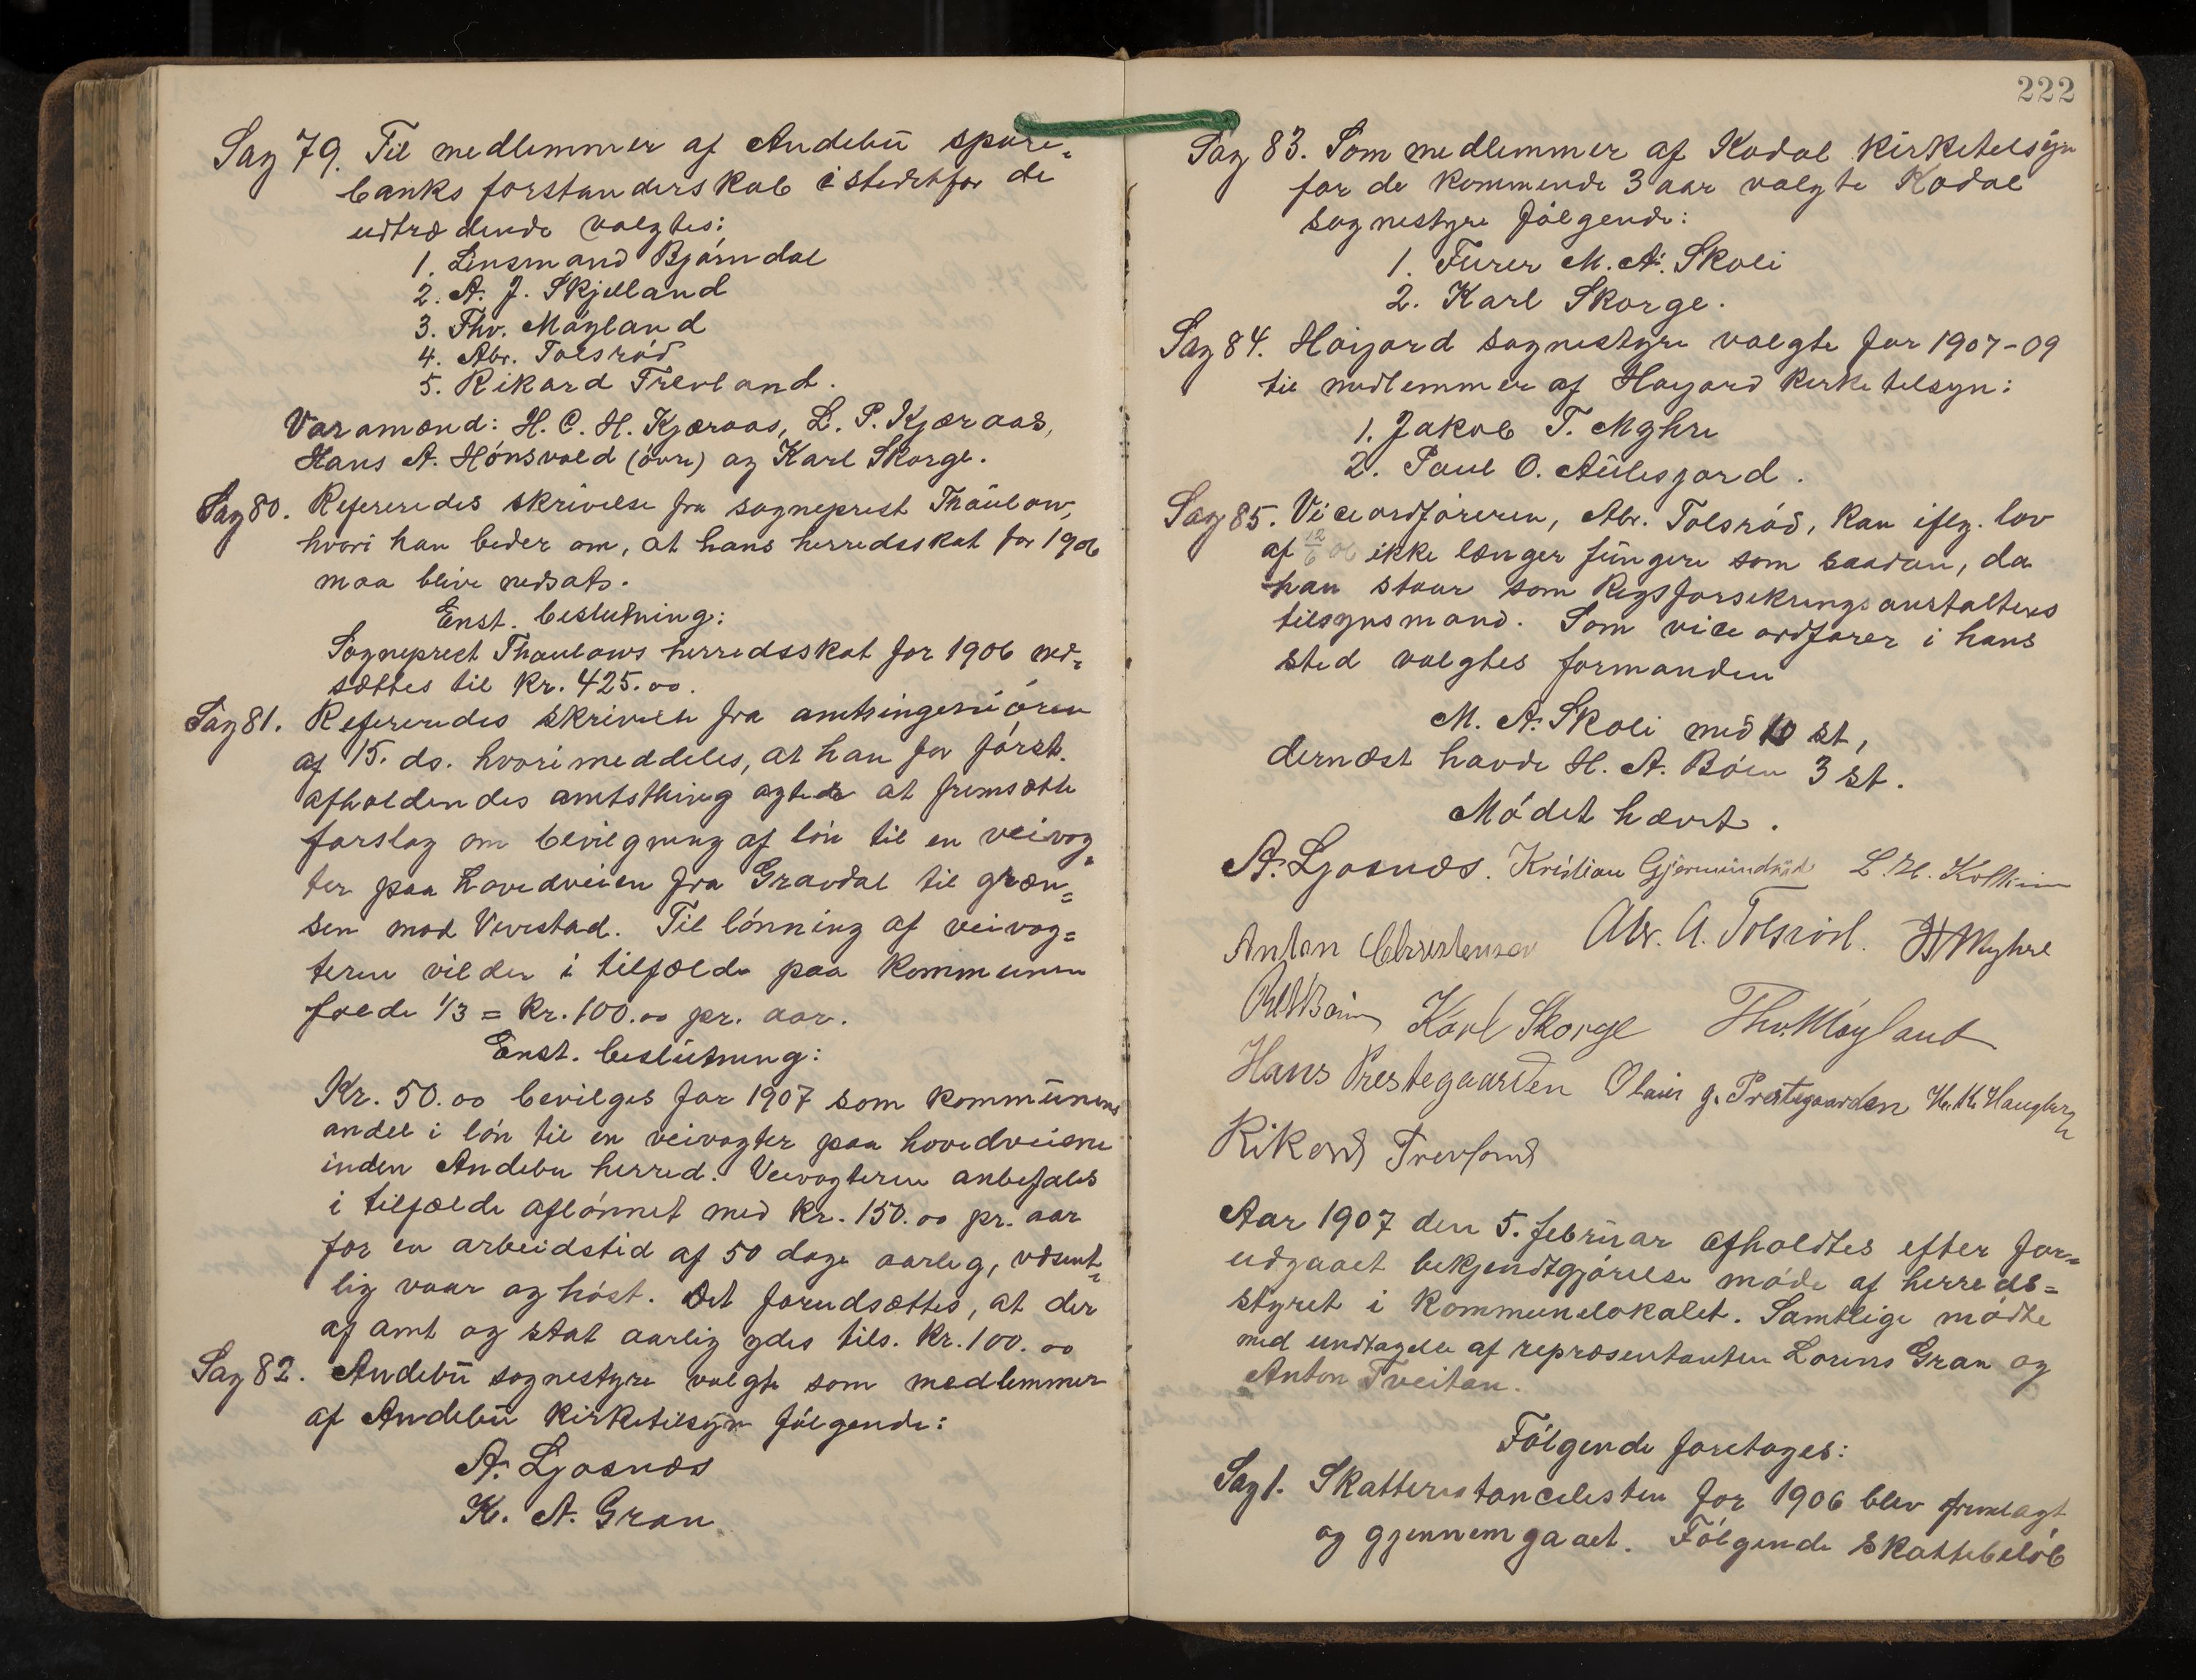 Sag 79. Til medlemmer af Andebu spare-
banks forstanderskab istedetfor de
udtrædende valgtes:
1. Lensmand Bjørndal
2. A. J. Skjelland
3. Thv. Møyland
4. Abr. Tolsrød
5. Rikard Trevland.
Varamænd: H. C. H. Kjæraas, L. P. Kjæraas,
Hans A. Hønsvald (øvre) og Karl Skorge.
Sag 80. Refereredes skrivelse fra sogneprest Thaulow,
hvori han beder om, at hans herredsskat for 1906
maa blive nedsat.
Enst. beslutning:
Sogneprest Thaulows herredsskat for 1906 ned-
sættes til kr. 425.00.
Sag 81. Refereredes skrivelse fra amtsingeniøren
af 15. ds. hvori meddeles, at han for først.
afholdendes amtsthing agtede at fremsætte
forslag om bevilgning af løn til en veivog=
ter paa hovedveien fra Gravdal til græn=
sen mod Vivestad. Til lønning af veivog=
teren vil der i tilfælde paa kommunen
falde 1/3 = kr. 100.00 pr. aar.
Enst. beslutning:
Kr. 50.00 bevilges for 1907 som kommunens
andel i løn til en veivogter paa hovedveiene
inden Andebu herred. Veivogteren anbefales
i tilfælde aflønnet med kr. 150.00 pr. aar
for en arbeidstid af 50 dage aarleg, væsent=
lig vaar og høst. Det forudsættes, at der
af amt og stat aarlig ydes tils. kr. 100.00
Sag 82. Andebu sognestyre valgte som medlemmer
af Andebu kirketilsyn følgende:
A. Ljosnæs
K. A. Gran
222
Sag 83. Som medlemmer af Kodal kirketilsyn
for de kommende 3 aar valgte Kodal
sognestyre følgende:
1. Furer M. A. Skoli
2. Karl Skorge.
Sag 84. Høijord sognestyre valgte for 1907-09
til medlemmer af Høijord kirketilsyn:
1. Jakob T. Myhre
2. Paul O. Aulesjord.
Sag 85. Viceordføreren, Abr. Tolsrød, kan iflg. lov
af 12/6 06 ikke længer fungere som saadan, da
han staar som Rigsforsikringsanstaltens
tilsynsmand. Som viceordfører i hans
sted valgtes formanden
M. A. Skoli med 10 st,
dernæst havde H. A. Bøen 3 st.
Mødet hævet.
A. Ljosnæs. Kristian Gjermundrød L. H.
Anton Christensen Abr. A. Tolsrød. Myhre
Karl Skorge Thv. Møyland
Hans Prestegaarden Olaus g. Prestegaarden
Rikard Trevland
Aar 1907 den 5. februar afholdtes efter for=
udgaaet bekjendtgjørelse møde af herreds=
styret i kommunelokalet. Samtlige mødte
med undtagelse af repræsentanten Lorens Gran og
Anton Tveitan.
Følgende foretoges:
Sag 1. Skatterestancelisten for 1906 blev fremlagt
og gjennemgaaet. Følgende skattebeløb